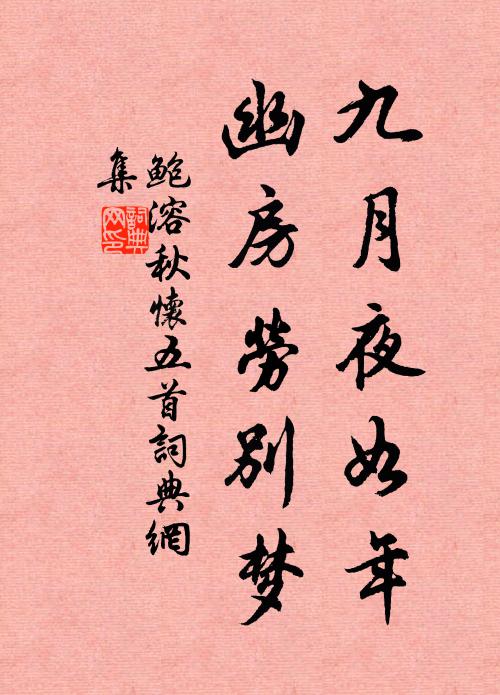 九月夜如年
幽房勞別梦
鲍溶秋懷五首詞典網
集
詞典网印